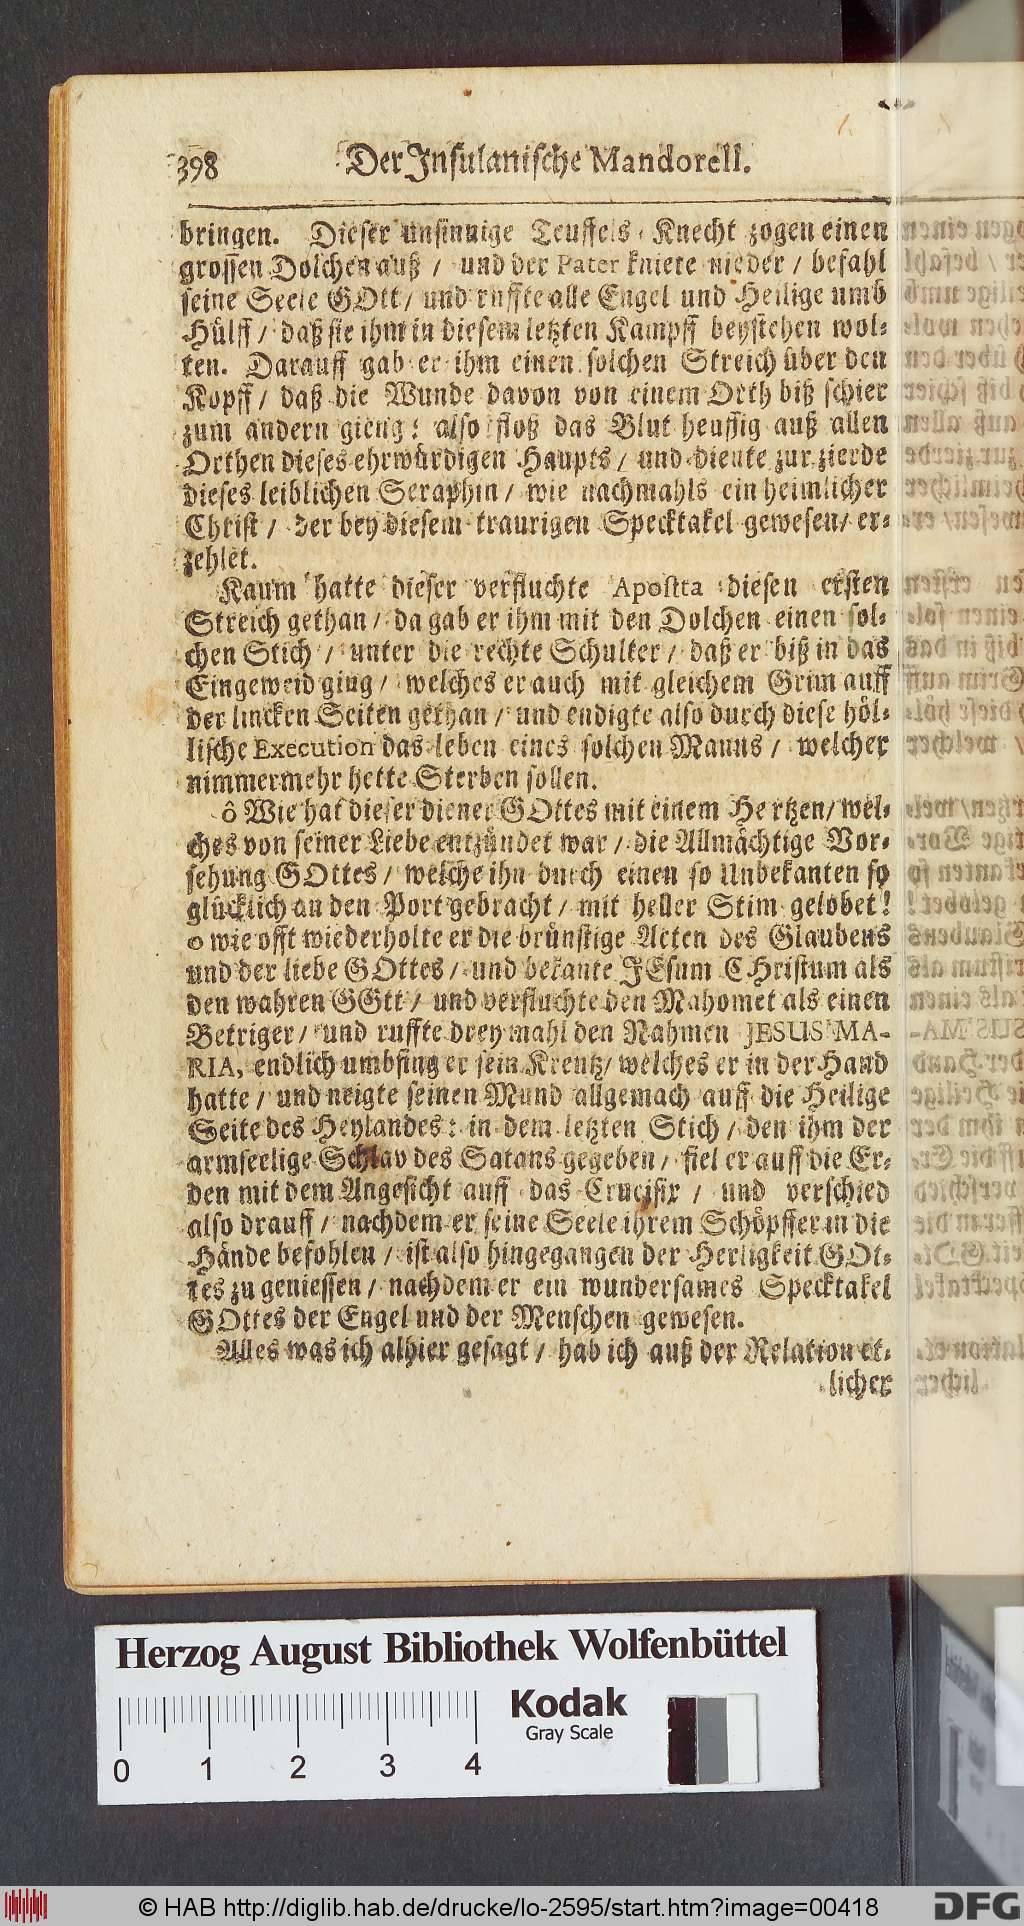 398 Der Insulanische Mandorell.
bringen. Dieser unsinnige Teuffels Knecht zogen einen
grossen Dolchen auß / und der Pater kniete nieder / befahl
seine Seele GOtt / und ruffte alle Engel und Heilige umb
Hülff / daß sie ihm in diesem letzten Kampff beystehen wol-
ten. Darauff gab er ihm einen solchen Streich über den
Kopff / daß die Wunde davon von einem Orth biß schier
zum andern gieng: also floß das Blut heuffig auß allen
Orthen dieses ehrwürdigen Haupts / und diente zur zierde
dieses leiblichen Seraphin / wie nachmahls ein heimlicher
Christ / der bey diesem traurigen Specktakel gewesen / er-
zehlet.
Kaum hatte dieser verfluchte Apostta diesen ersten
Streich gethan / da gab er ihm mit den Dolchen einen sol-
chen Stich / unter die rechte Schulter / daß er biß in das
Eingeweid ging / welches er auch mit gleichem Grim auff
der lincken Seiten gethan / und endigte also durch diese höl-
lische Execution das leben eines solchen Manns / welcher
nimmermehr hette Sterben sollen.
ô Wie hat dieser diener GOttes mit einem Hertzen / wel-
ches von seiner Liebe entzündet war / die Allmächtige Vor-
sehung GOttes / welche ihn durch einen so Unbekanten so
glücklich an den Port gebracht / mit heller Stim gelobet!
o wie offt wiederholte er die brünstige Acten des Glaubens
und der liebe GOttes / und bekante JEsum CHristum als
den wahren GGtt / und verfluchte den Mahomet als einen
Betriger / und ruffte drey mahl den Nahmen JESUS MA-
RIA, endlich umbfing er sein Kreutz / welches er in der Hand
hatte / und neigte seinen Mund allgemach auff die Heilige
Seite des Heylandes: in dem letzten Stich / den ihm der
armseelige Schlav des Satans gegeben / fiel er auff die Er-
den mit dem Angesicht auff das Crucifix / und verschied
also drauff / nachdem er seine Seele ihrem Schöpffer in die
Hände befohlen / ist also hingegangen der Herligkeit GOt-
tes zu geniessen / nachdem er ein wundersames Specktakel
GOttes der Engel und der Menschen gewesen.
Alles was ich alhier gesagt / hab ich auß der Relation et-
licher
Herzog August Bibliothek Wolfenbüttel
Kodak
Gray Scale
0 1 2 3 4
© HAB http://diglib.hab.de/drucke/lo-2595/start.htm?image=00418
DFG